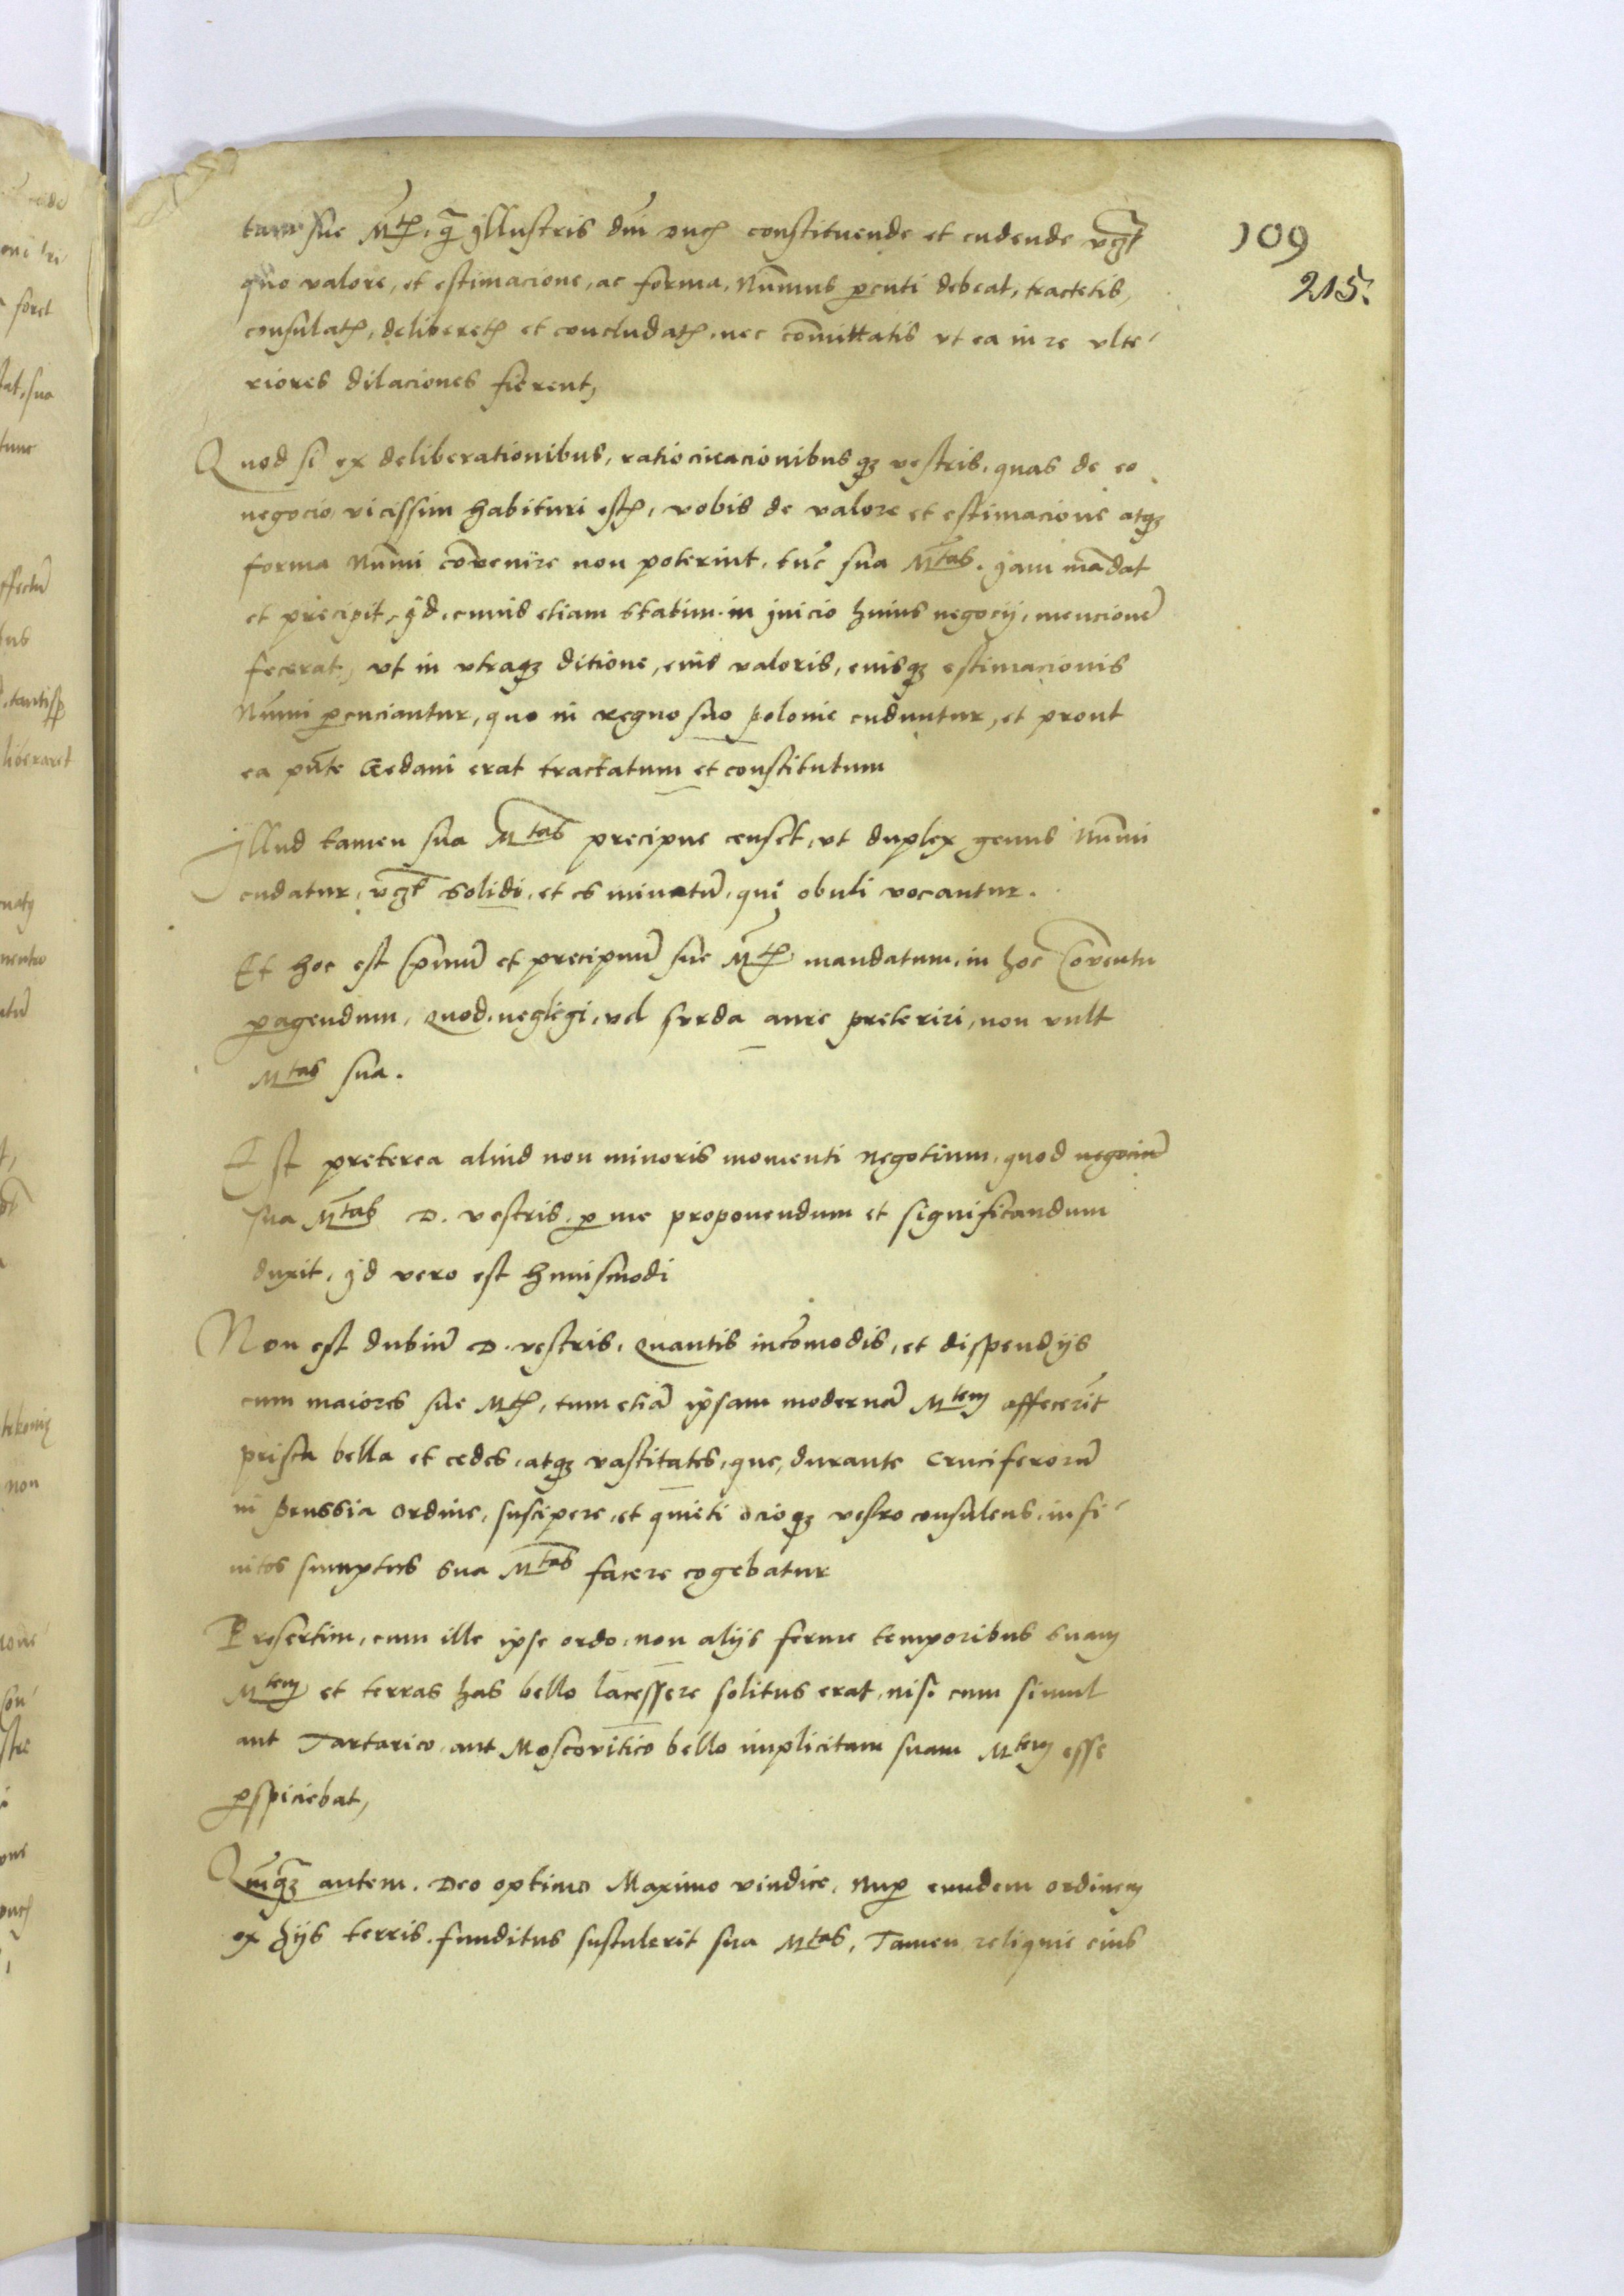 109
215.
tam sue Mtis, q̃ illustris dñi ducis constituende et cudende vꝫlt
quo valore, et estimacione, ac forma, Nummus percuti debeat, tractetis,
consulatis, deliberetis et concludatis, nec comittatis vt ea in re vlte-
riores dilaciones fierent,
Quod si ex deliberationibus, ratiocinacionibusqꝫ vestris, quas de eo
negocio, vicissim habituri estis, vobis de valore et estimacione atqꝫ
forma Num̃i cõvenire non poterint, tũc sua Mtas. jam mãdat
et precipit, jd, cuius etiam statim in jnicio huius negocij, mencionẽ
fecerat, vt in vtraqꝫ ditione, eius valoris, eiusqꝫ estimacionis
Nũmi percuciantur, quo in regno suo Polonie cuduntur, et prout
ea pñte Gedani erat tractatum et constitutum
Jllud tamen sua Mtas precipue censet, vt duplex genus Nũmi
cudatur, vꝫlt solidi, et es minutũ, qui obuli vocantur.
Et hoc est sp̃mũ et precipuũ sue Mtis mandatum, in hoc Cõventu
peragendum, quod, neglegi, vel surda aure preteriri, non vult
Mtas sua.
Est preterea aliud non minoris momenti negotium, quod negociũ
sua Mtas D. vestris, per me proponendum et significandum
duxit, jd vero est huiusmodi
Non est dubiũ D. vestris, quantis incõmodis, et dispendijs
cum maiores sue Mtis, tum etiã ipsam modernã Mtem affecerĩt
prisca bella et cedes, atqꝫ vastitates, que, durante Cruciferorũ
in Prussia ordine, suscipere, et quieti ocioqꝫ vestro consulens, infi-
nitos sumptus sua Mtas facere cogebatur
Presertim, cum ille ipse ordo, non alijs ferme temporibus suam
Mtem et terras has bello lacessere solitus erat, nisi cum simul
aut Tartarico, aut Moscovitico bello implicitam suam Mtem esse
perspiciebat,
Quãqꝫ autem, Deo optimo Maximo vindice, Nuper eundem ordinem
ex hijs terris funditus sustulerit sua Mtas, Tamen reliquie eius